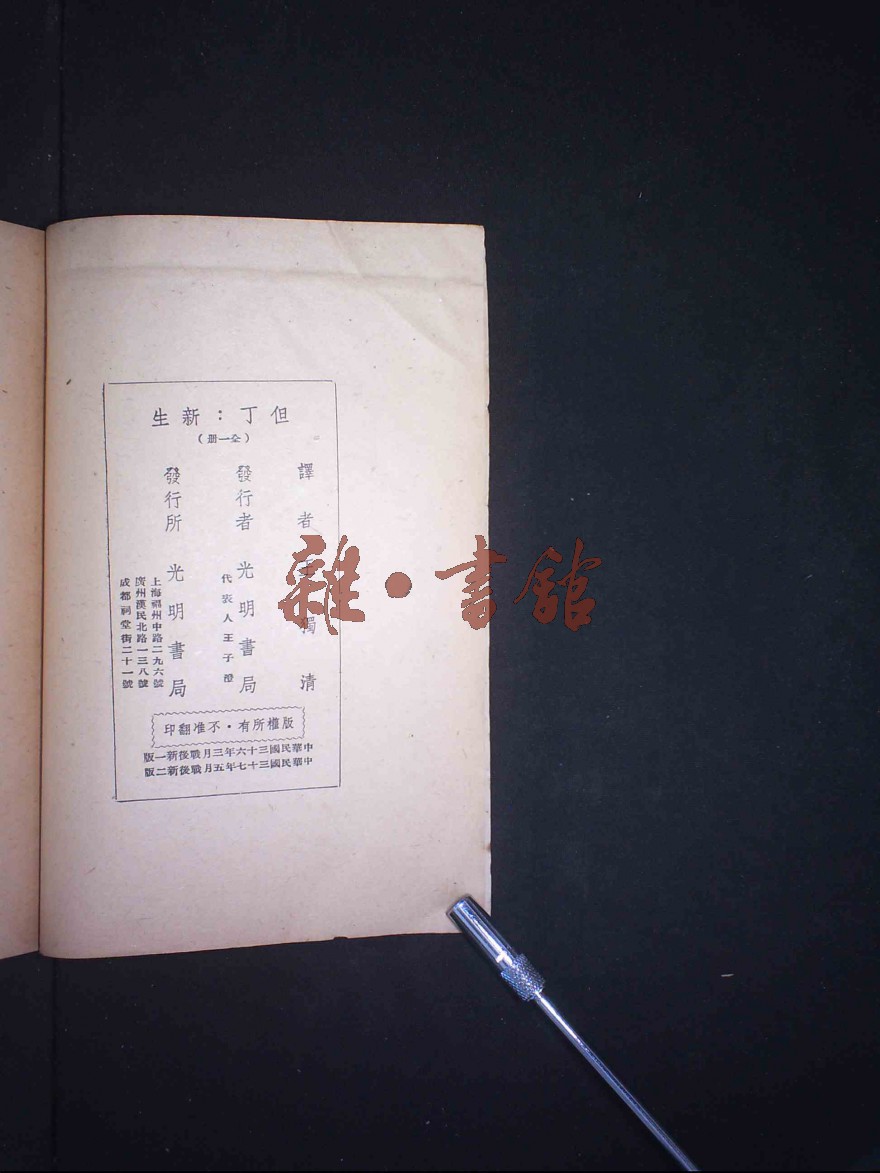 但丁：新生
（全一册）
譯者 王獨清
發行者 光明書局
代表人王子澄
發行所 光明書局
上海福州中路二九六號
廣州漢民北路一三八號
成都祠堂街二十一號
版權所有·不准翻印
中華民國三十六年三月戰後新一版
中華民國三十七年五月戰後新二版
雜·書館